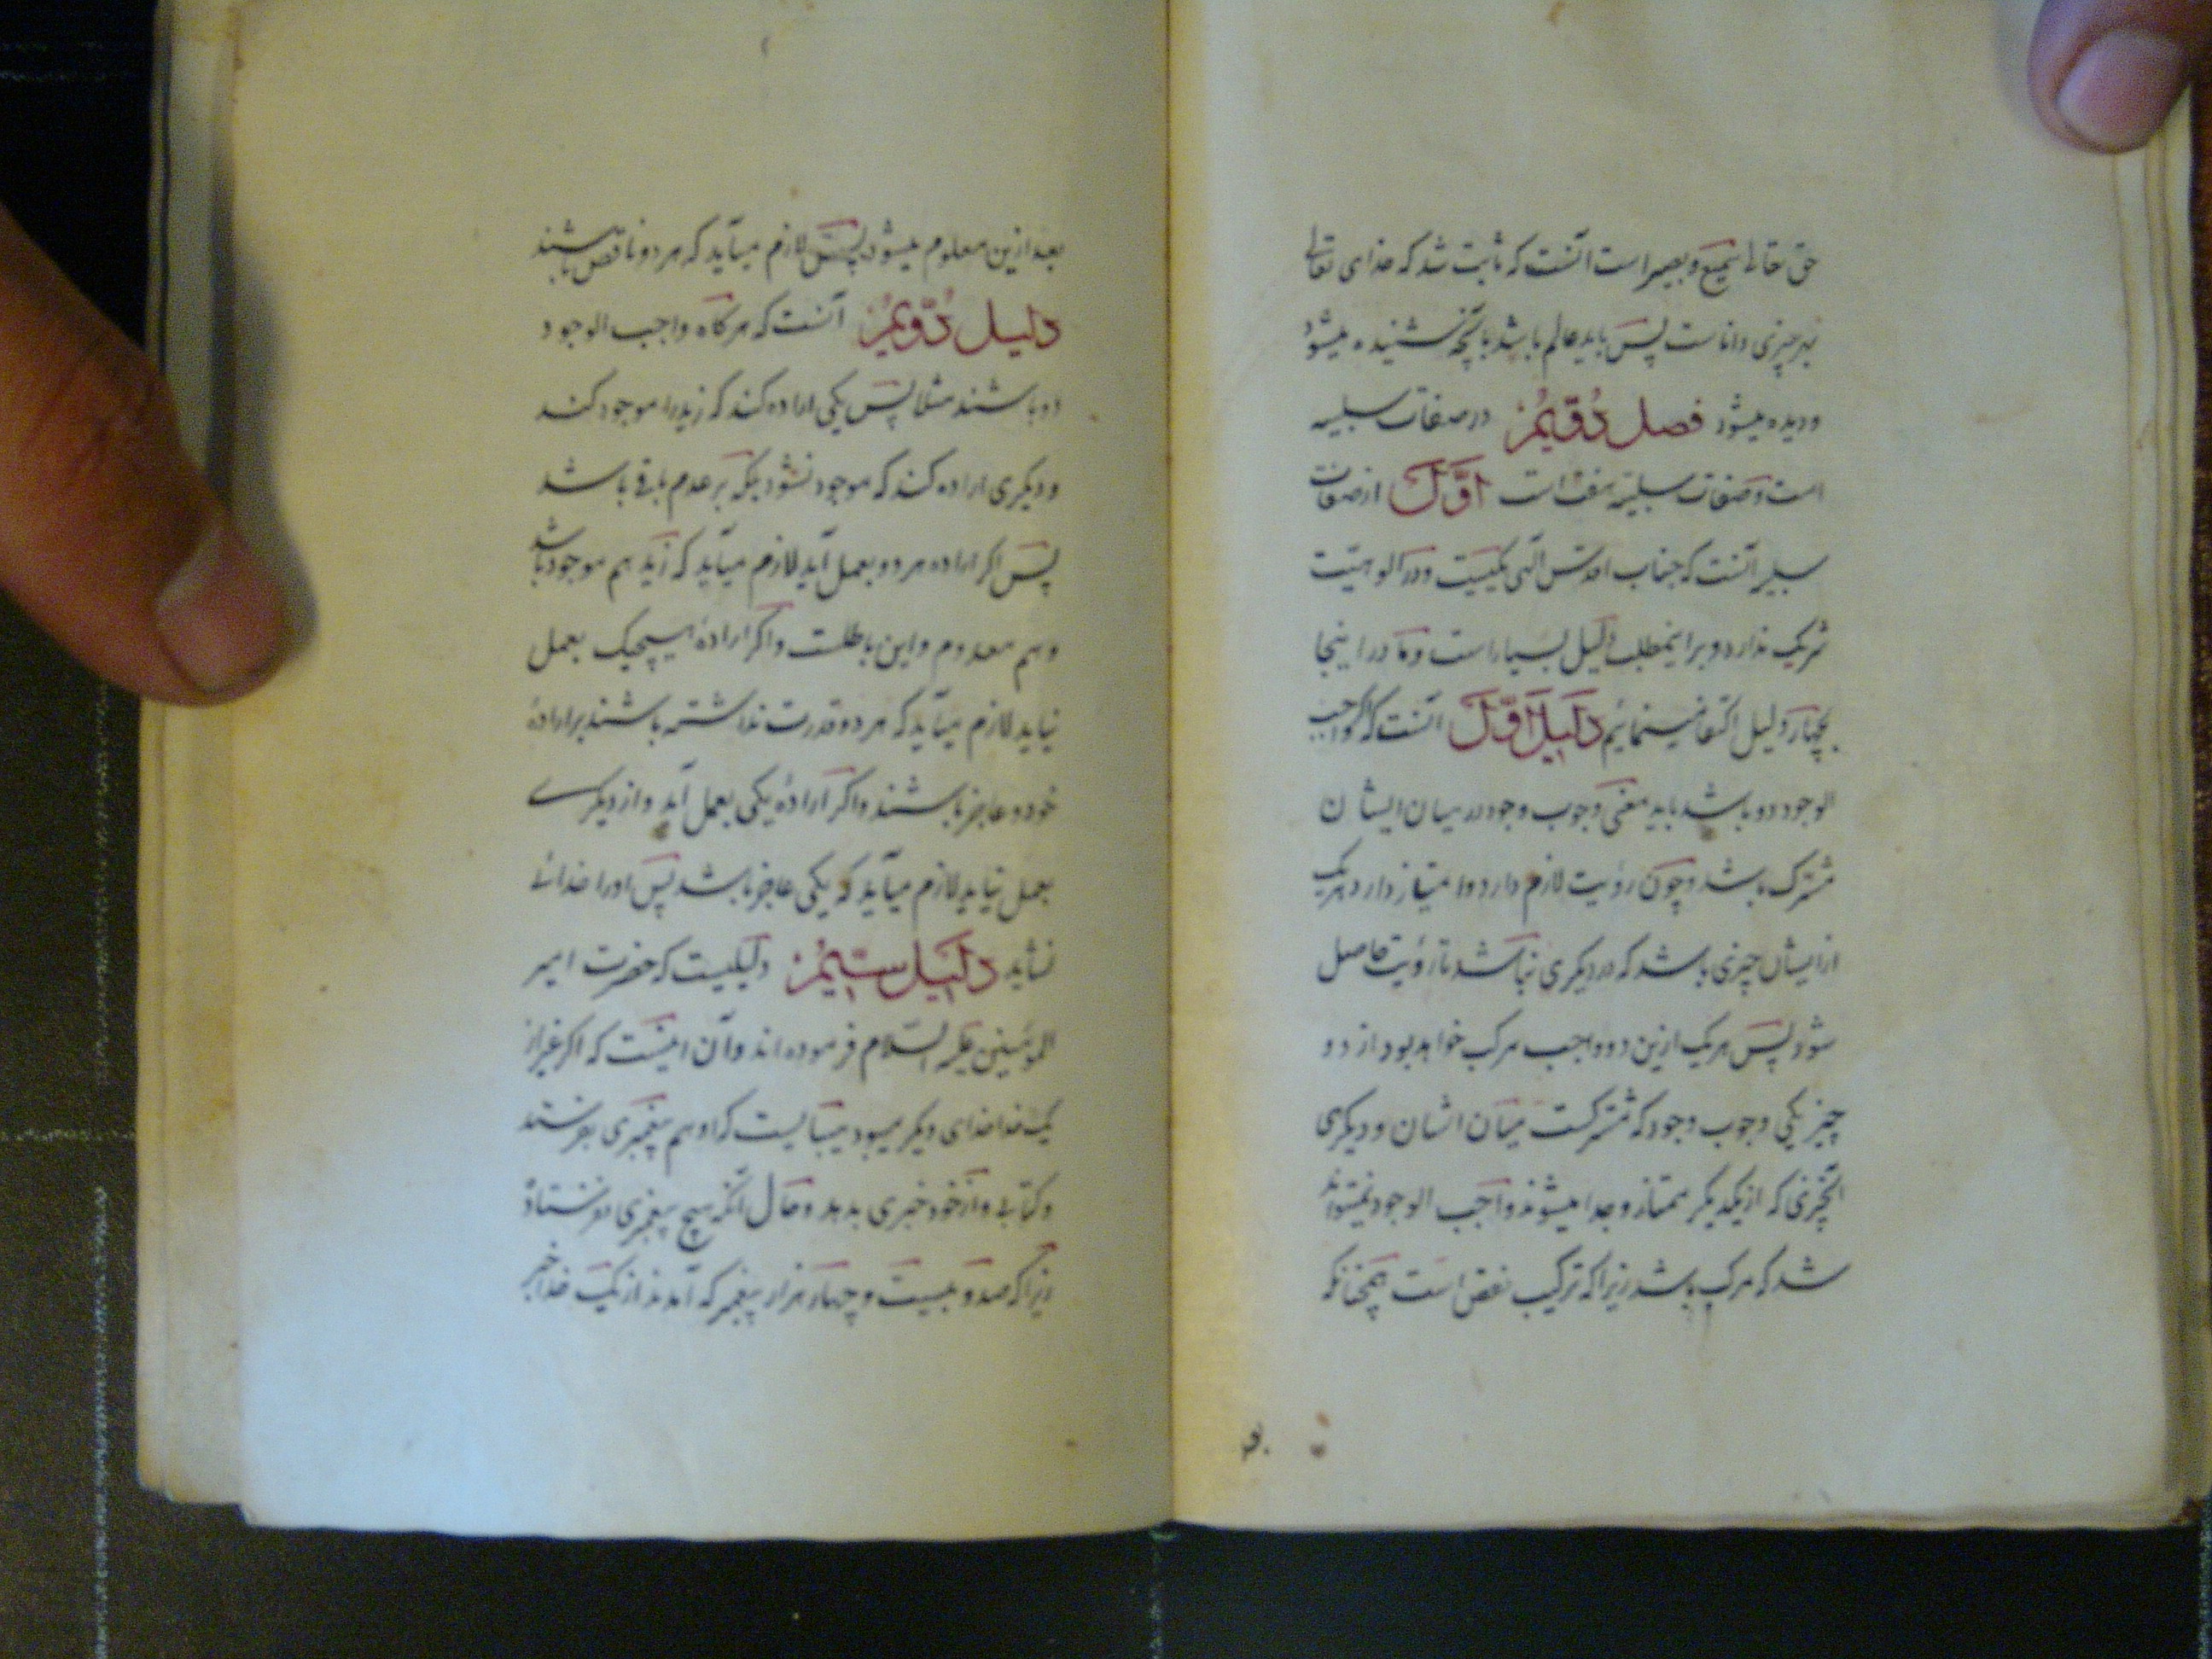 حق تعالی سمیع و بصیر است آنست که ثابت شد که خدای تعالی
بهر چیزی دانا ست پس باید عالم باشد بآنچه شنیده میشود
و دیده میشود فصل دویم در صفات سلبیه
است و صفات سلبیه هفت است اول از صفات
سلبیه آنست که جناب اقدس الهی یکیست و در الوهیت
شریک ندارد و بر اینمطلب دلیل بسیار است و ما در اینجا
بچهار دلیل اکتفا مینمائیم دلیل اول آنست که اگر واجب
الوجود دو باشد باید معنی وجوب وجود در میان ایشان
مشترک باشد و چون دوئیت لازم دارد و امتیاز دارد هر یک
از ایشان چیزی باشد که در دیگری نباشد تا دوئیت حاصل
شود پس هر یک ازین دو واجب مرکب خواهد بود از دو
چیز یکی وجوب وجود که مشترکست میان اشان و دیگری
آنچیزی که از یکدیگر ممتاز و جدا میشوند و واجب الوجود نمیتواند
شد که مرکب باشد زیرا که ترکیب نقص است همچنانکه
بعد ازین معلوم میشود پس لازم میآید که هر دو ناقص باشند
دلیل دویم آنست که هر گاه واجب الوجود
دو باشند مثلا پس یکی اراده کند که زید را موجود کند
و دیگری اراده کند که موجود نشود بلکه بر عدم باقی باشد
پس اگر اراده هر دو بعمل آید لازم میآید که زید هم موجود باشد
و هم معدوم و این باطلست و اگر ارادهٔ هیچیک بعمل
نیاید لازم میآید که هر دو قدرت نداشته باشند بر ارادهٔ
خود و عاجز باشند و اگر ارادهٔ یکی بعمل آید و از دیگری
بعمل نیاید لازم میآید که یکی عاجز باشد پس او را خدائے
نشاید دلیل سیم دلیلیست که حضرت امیر
المؤمنین علیه السلام فرموده اند و آن اینست که اگر غیر از
یک خدا خدای دیگر میبود میبایست که او هم پیغمبری بفرستد
و کتابی و از خود خبری بدهد و حال آنکه هیچ پیغمبری نفرستاد
زیرا که صد و بیست و چهار هزار پیغمبر که آمدند از یک خدا خبر